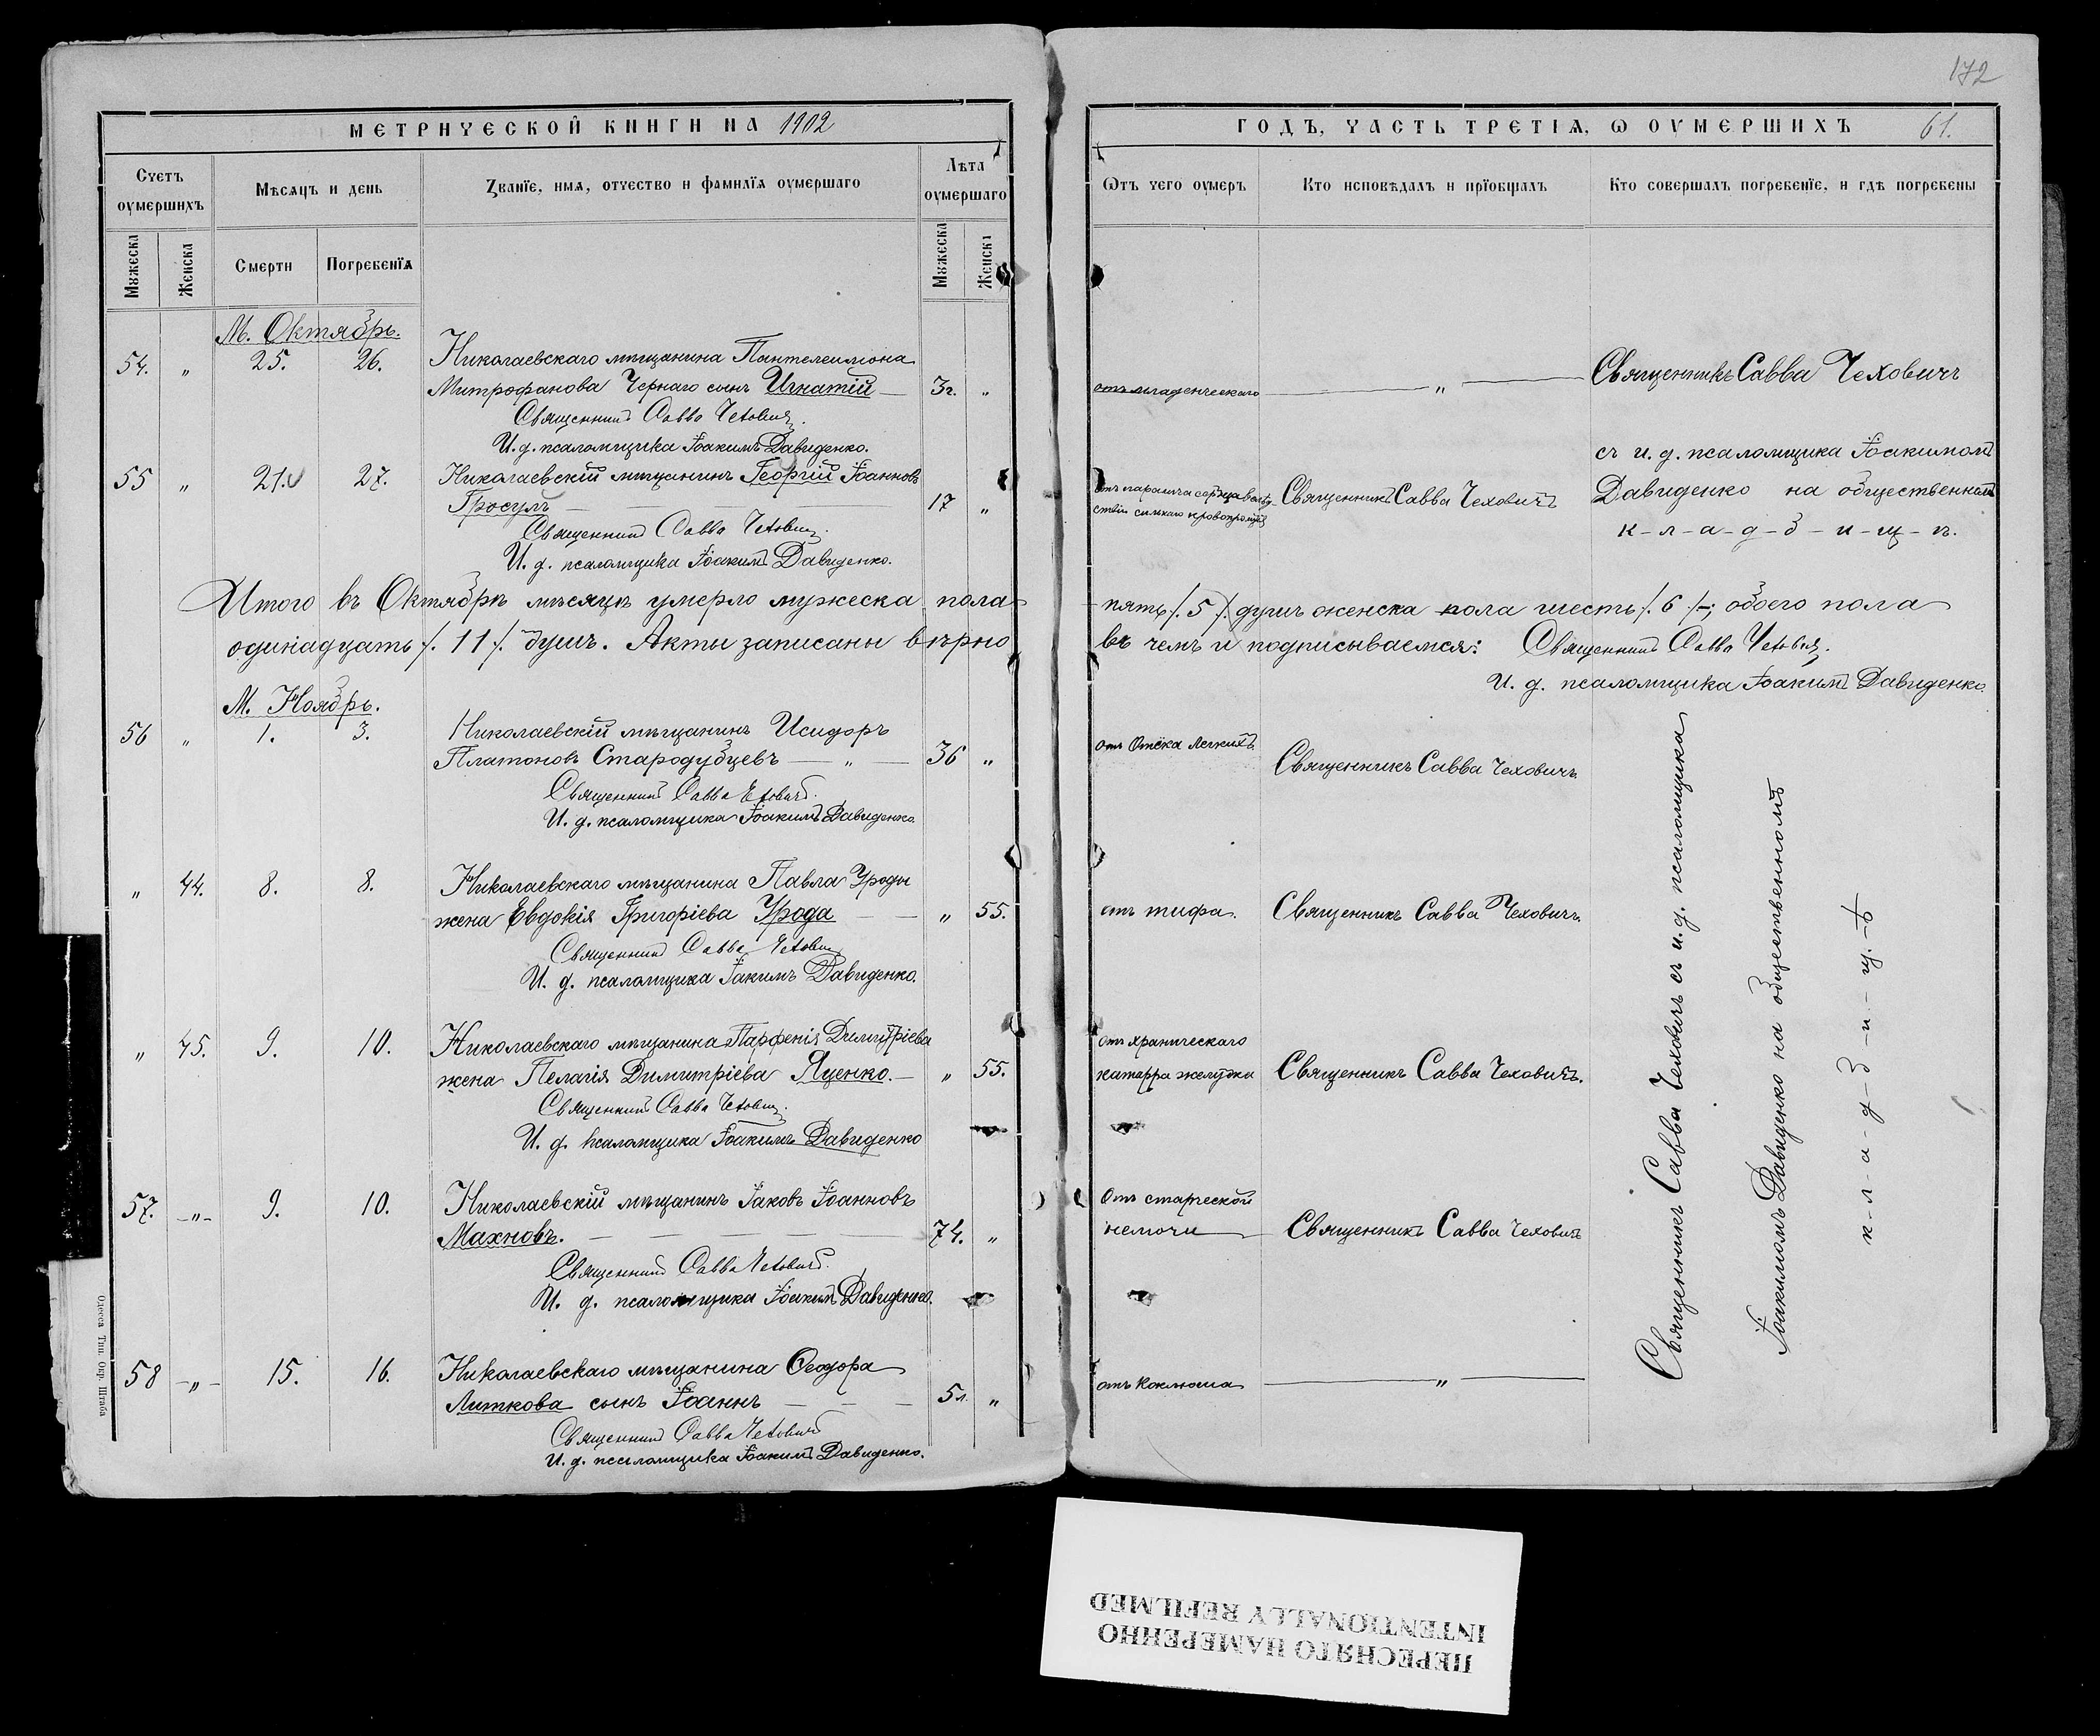 172
МЕТРИЧЕСКОЙ КНИГИ НА 1902
ГОДЪ, ЧАСТЬ ТРЕТІѦ, Ѡ ОУМЕРШИХЪ 61.
Счетъ оумершихъ
Мѣсяцъ и день
Званїе, имѧ, отчество и фамилїѧ оумершаго
Лѣта оумершаго
Ѿтъ чего оумеръ
Кто исповѣдалъ и прїобщалъ
Кто совершалъ погребенїе, и гдѣ погребены
Мꙋжеска
Женска
Смерти
Погребенїѧ
Мꙋжеска
Женска
М. Октябрь.
54. „ 25. 26. Николаевскаго мѣщанина Пантелеимона
Митрофанова Чернаго сынъ Игнатій — 3г. „
Священникъ Савва Чеховичъ.
И. д. псаломщика Іоакимъ Давиденко.
отъ младенческаго — „ —
Священникъ Савва Чеховичъ
съ и. д. псаломщика Іоакимомъ
Давиденко на общественномъ
к-л-а-д-б-и-щ-ѣ.
55 „ 21. 27. Николаевскій мѣщанинъ Георгій Іоанновъ
Гросулъ — 17 „
Священникъ Савва Чеховичъ.
И. д. псаломщика Іоакимъ Давиденко.
отъ паралича сердца
ствіи сильнаго
Священникъ Савва Чеховичъ
Итого въ Октябрѣ мѣсяцѣ умерло мужеска пола
пять /. 5 /. душъ женска пола шесть /. 6 /-; обоего пола
одинадцать /. 11 /. душъ. Акты записаны вѣрно
въ чемъ и подписываемся: Священникъ Савва Чеховичъ.
И. д. псаломщика Іоакимъ Давиденко.
М. Ноябрь.
56 „ 1. 3. Николаевскій мѣщанинъ Исидоръ
Платоновъ Стародубцевъ — „ — 36 „
Священникъ Савва Чеховичъ.
И. д. псаломщика Іоакимъ Давиденко.
отъ Отёка легкихъ
Священникъ Савва Чеховичъ
„ 44. 8. 8. Николаевскаго мѣщанина Павла Уроды
жена Евдокія Григоріева Урода — „ 55.
Священникъ Савва Чеховичъ
И. д. псаломщика Іакимъ Давиденко.
отъ тифа.
Священникъ Савва Чеховичъ.
„ 45. 9. 10. Николаевскаго мѣщанина Парфенія Димитріева
жена Пелагія Димитріева Яценко. — „ 55.
Священникъ Савва Чеховичъ.
И. д. псаломщика Іоакимъ Давиденко
отъ храническаго
катарра желудка
Священникъ Савва Чеховичъ.
57. -„- 9. 10. Николаевскій мѣщанинъ Іаковъ Іоанновъ
Махновъ. — 74. „
Священникъ Савва Чеховичъ.
И. д. псаломщика Іоакимъ Давиденко.
Отъ старческой
немочи
Священникъ Савва Чеховичъ
58 -„- 15. 16. Николаевскаго мѣщанина Ѳеодора
Литкова сынъ Іоаннъ — 5л. „
Священникъ Савва Чеховичъ
И. д. псаломщика Іоакимъ Давиденко.
отъ Коклюша — „ —
Священникъ Савва Чеховичъ съ и. д. псаломщика
Іоакимомъ Давиденко на общественномъ
к-л-а-д-б-и-щ-ѣ
Одесса Тип. Окр. Штаба
ПЕРЕСНЯТО НАМЕРЕННО
INTENTIONALLY REFILMED